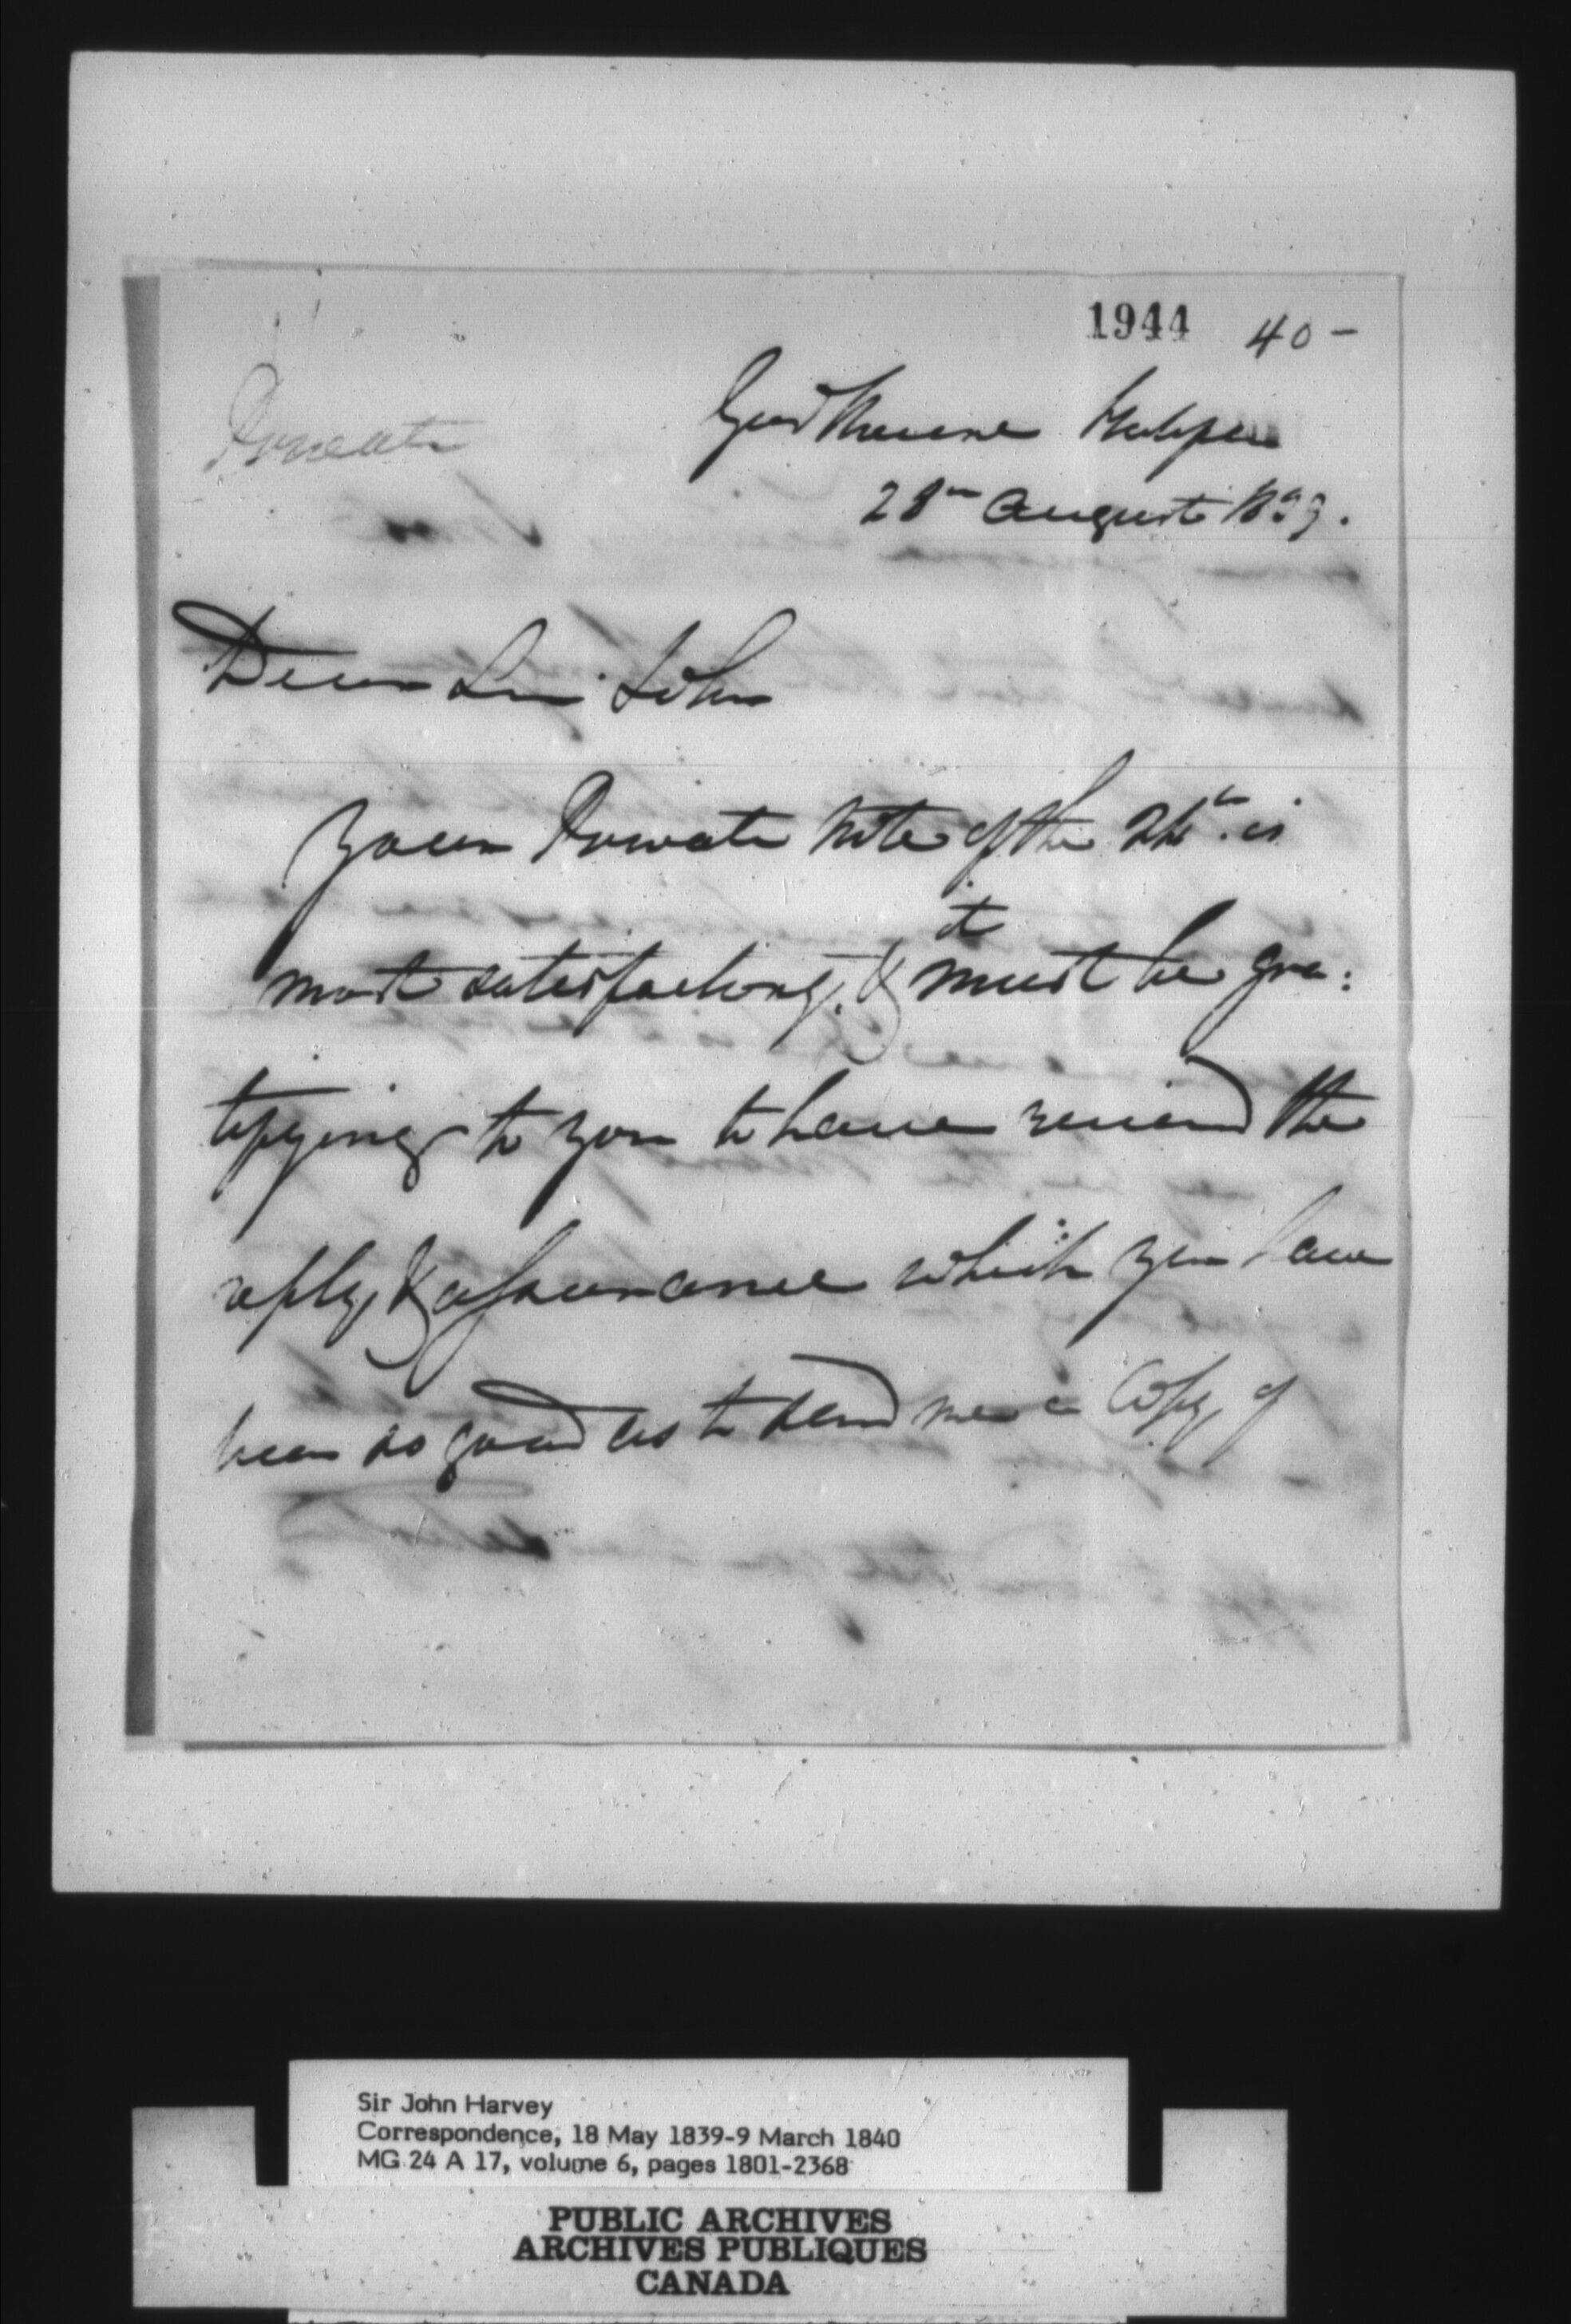 1944 40-
Private
Govt House Halifax
28th August 1839.
Dear Sir John
Your Private Note of the 24th. is
it
most satisfactory, & must be gra:
tifying to you to have received the
reply, & assurance which you have
been so good as to send me a Copy of
Sir John Harvey
Correspondence, 18 May 1839-9 March 1840
MG 24 A 17, volume 6, pages 1801-2368
PUBLIC ARCHIVES
ARCHIVES PUBLIQUES
CANADA